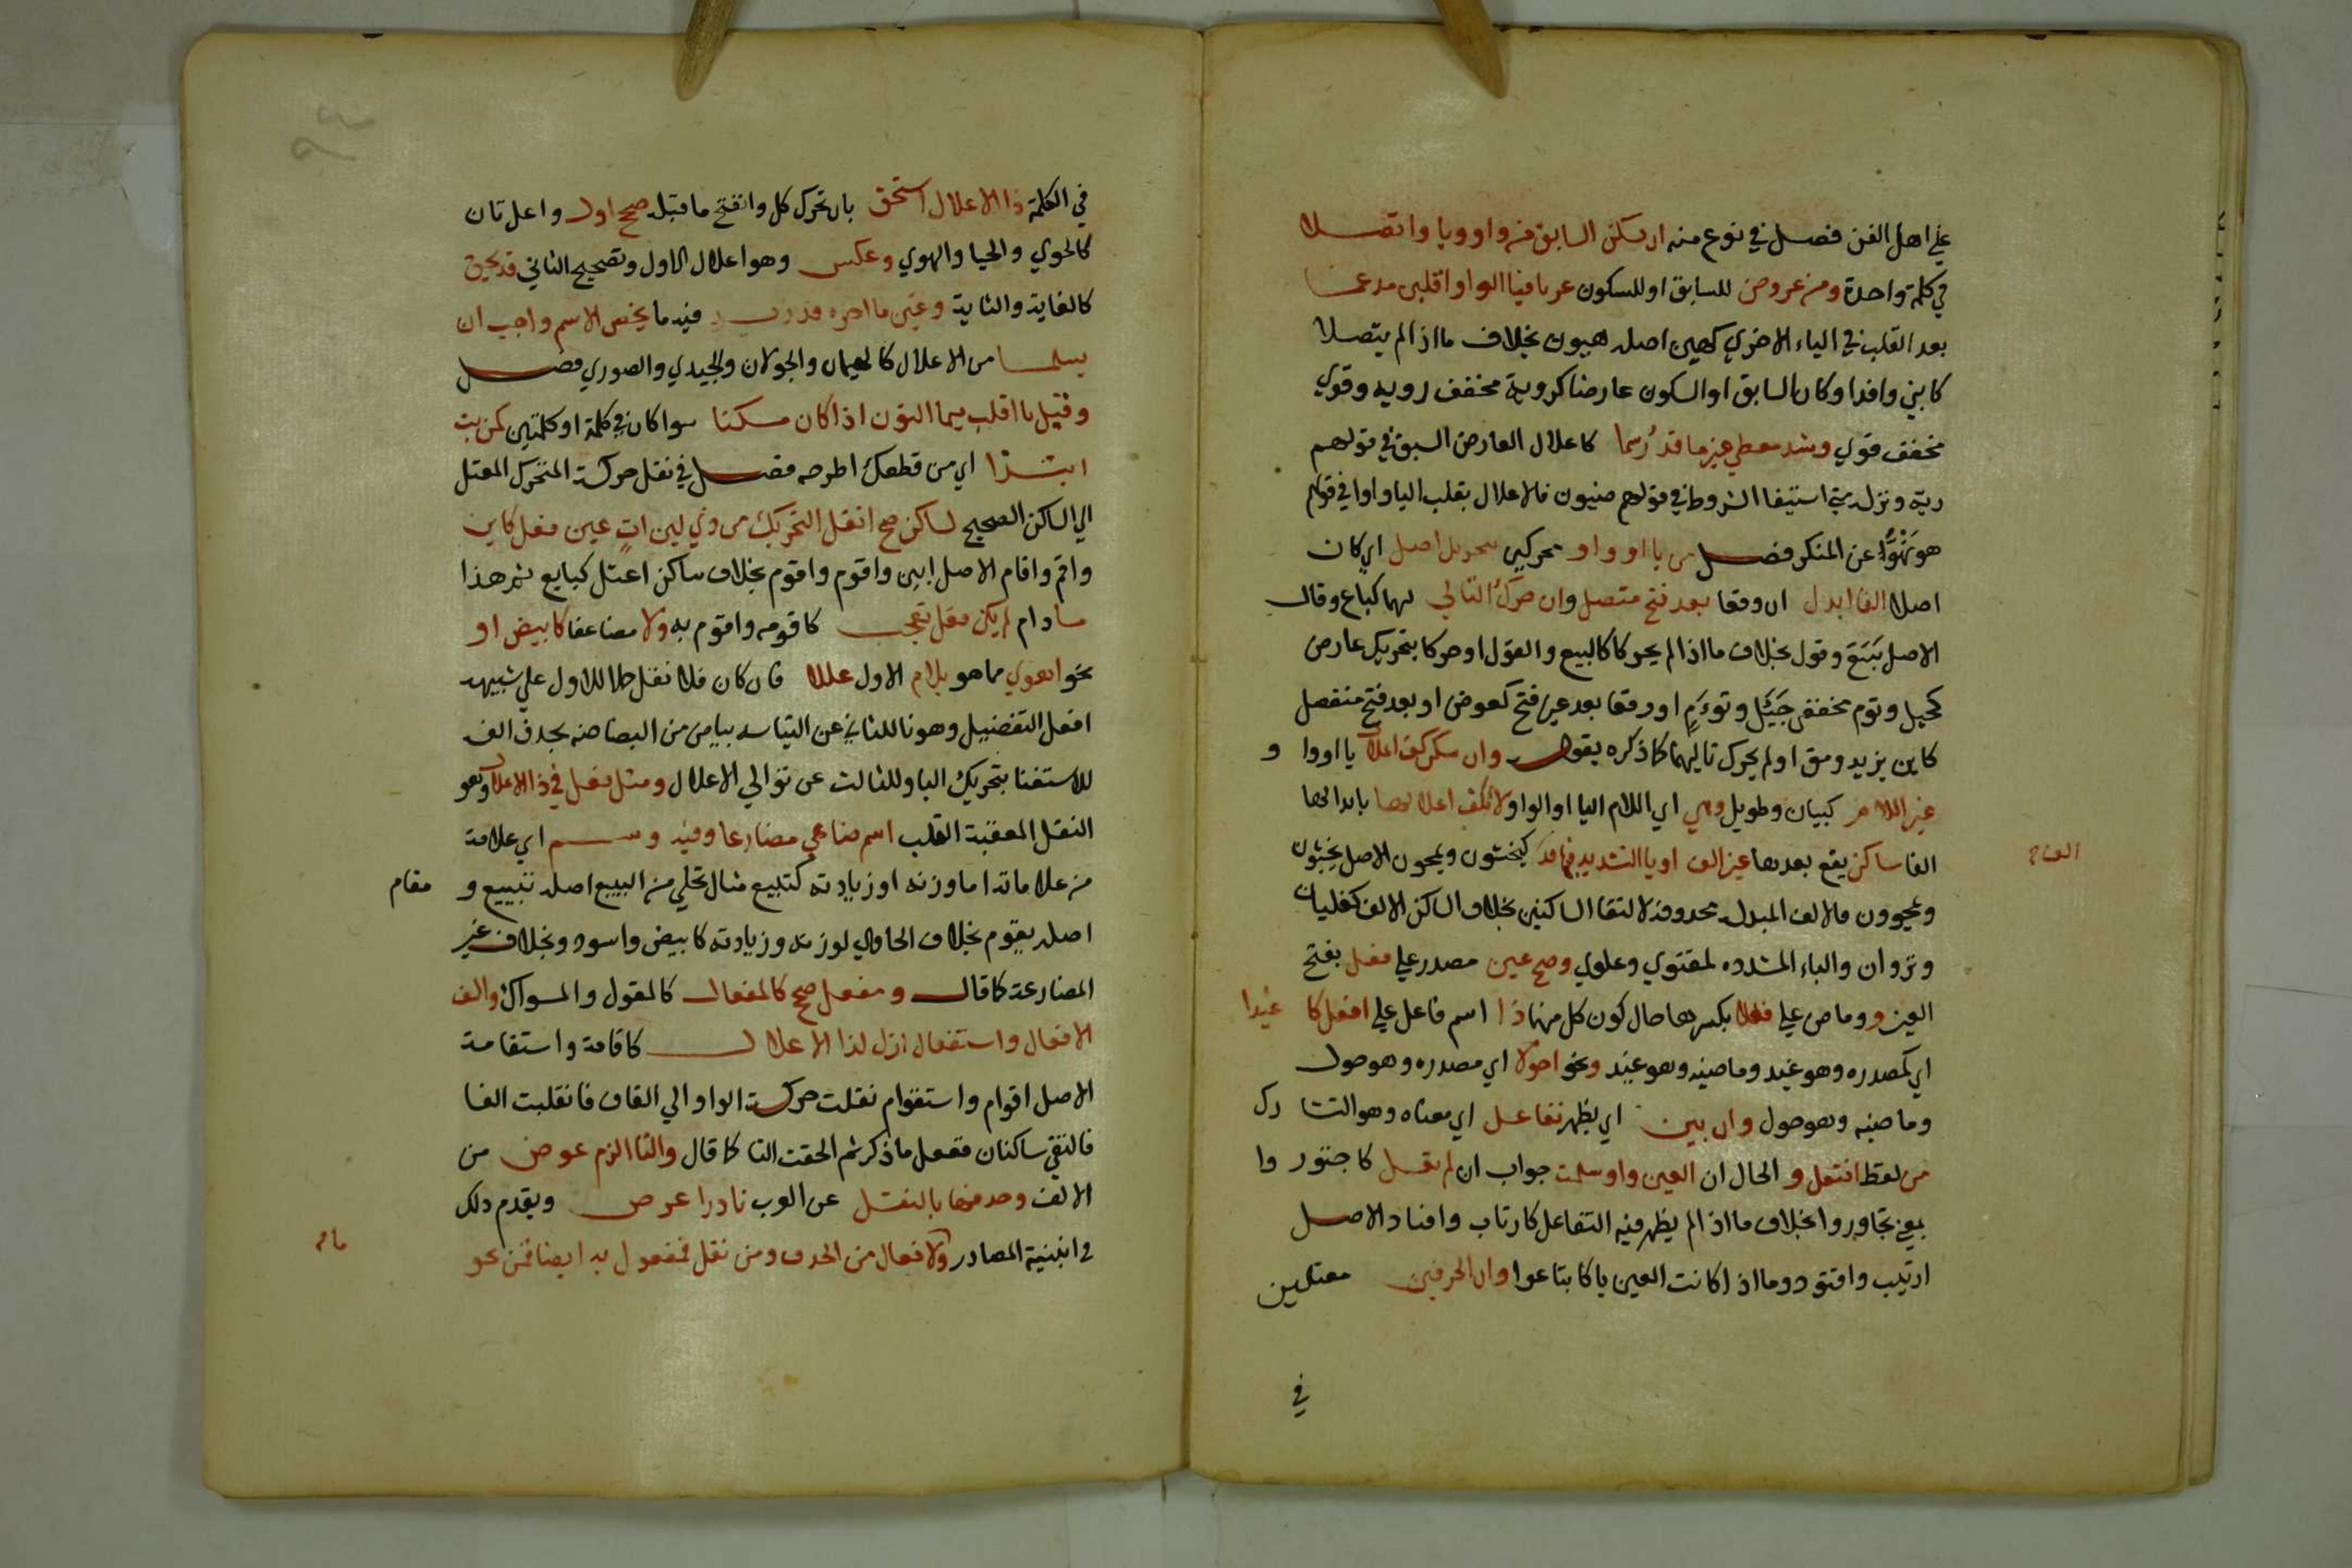 علي اهل الفن فصل في نوع منه ان يسكن السابق من واو ويا واتصلا
في كلمة واحدة ومن عروض للسابق او للسكون عريا فيا الواو اقلبن مدغما
بعد القلب في الياء الاخري كهين اصله هيون بخلاف ما اذا لم يتصلا
كابني وافد او كان السابق او السكون عارضا كروية مخفف رويه وقوي
مخفف قوي وشذ معطي غير ما قد رسما كاعلال العارض السبق في قولهم
رية وترك مع استيفا الشروط في قولهم ضيون فالاعلال بقلب اليا واوا في قولهم
هو نهو عن المنكر فصل من يا او واو بتحريك اصل اي كان
اصلا الفا ابدل ان وقعا بعد فتح متصل وان حرك التالي لهما كباع وقال
الاصل بيع وقول بخلاف ما اذا لم يحركا كالبيع والقول او حركا بتحريك عارض
كجيل وتوم مخففي جيئل وتوءم او وقعا بعد غير فتح كعوض او بعد فتح منفصل
كاين يزيد ومق او لم يحرك تاليهما كما ذكره بقوله وان سكن كف اعلال يا او وا و
غير اللام كبيان وطويل وهي اي اللام اليا او الواو لا يكف اعلالها بابدالها
الفا ساكن يقع بعدها غير الف او يا التشديد فيها قد كيخشون ويمحون الاصل يخشيون
ويمحوون فالالف المبدله محذوفة لالتقا الساكنين بخلاف الساكن الالف كغليان
ونزوان والياء المشدده لمقتوي وعلوي وصح عين مصدر علي فعل بفتح
العين و وماض علي فعلا بكسرها حال كون كل منهما ذا اسم فاعل علي افعل كا غيدا
اي كمصدره وهو غيد وماضيه وهو غيد ونحو احولا اي مصدره وهو حول
وماضيه وهو حول وان يبن اي يظهر تفاعل اي معناه وهو التشا رك
من لفظ افتعل و الحال ان العين واو سلمت جواب ان لم تعل كاجتور وا
بمعني تجاوروا بخلاف ما اذا لم يظهر فيه التفاعل كارتاب واقتاد الاصل
ارتيب واقتود وما اذا كانت العين يا كابتاعوا وان لحرفين معتلين
في
في الكلمة ذا الاعلال استحق بان تحرك كل وانفتح ما قبله صحح اول واعل ثان
كالحوي والحيا والهوي وعكس وهو اعلال الاول وتصحيح الثاني قد يحق
كالغاية والثاية وعين ما اخره قد زيد فيه ما يخص الاسم واجب ان
يسلما من الاعلال كالهيمان والجولان والحيدي والصوري فصل
وقبل با اقلب ميما النون اذا كان مسكنا سوا كان في كلمة او كلمتين كمن بت
انبذا اي من قطعك اطرحه فصل في نقل حركة المتحرك المعتل
الي الساكن الصحيح لساكن صح انقل التحريك من ذي لين ات عين فعل كابن
واقم واقام الاصل ابين واقوم واقوم بخلاف ساكن اعتل كبايع ثم هذا
مادام لم يكن فعل تعجب كاقومه واقوم به ولا مضاعفا كابيض او
نحو اهوي مما هو بلام الاول عللا فان كان فلا نقل حملا للاول علي شبيهه
افعل التفضيل وصونا للثاني عن التباسه بباض من البضاضه بحذف الف
للاستغنا بتحريك البا وللثالث عن توالي الاعلال ومثل فعل في ذا الاعلال وهو
النقل المعقبة القلب اسم ضاهي مضارعا وفيه وسم اي علامة
من علاماته اما وزنه او زيادته كتبيع مثال تحلي من البيع اصله تبييع و مقام
اصله يقوم بخلاف الحاوي لوزنه وزيادته كابيض واسود وبخلاف غير
المضارعة كما قال ومفعل صحح كالمفعال كالمقول والمسواك والف
الافعال واستفعال ازل لذا الاعلال كاقامة واستقامة
الاصل اقوام واستقوام نقلت حركة الواو الي القاف فانقلبت الفا
فالتقي ساكنان ففعل ما ذكر ثم الحقت التا كما قال والتا الزم عوض من
الالف وحذفها بالنقل عن العرب نادرا عرض ويقدم ذلك
في ابنية المصادر ولافعال من الحذف ومن نقل فمفعول به ايضا قمن نحو